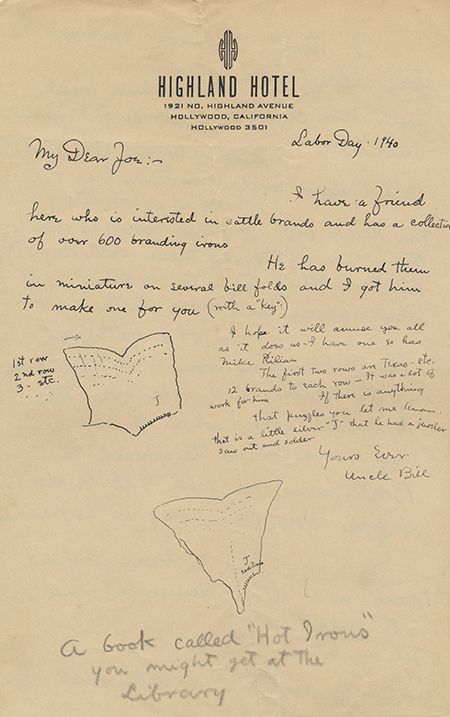 HIGHLAND HOTEL
1921 NO. HIGHLAND AVENUE
HOLLYWOOD, CALIFORNIA
HOLLYWOOD 3501
Labor Day - 1940
My Dear Joe:-
I have a friend
here who is interested in cattle brands and has a collection
of over 600 branding irons
He has burned them
in miniature on several bill folds and I got him
to make one for you (with a "Key")
I hope it will amuse you all
as it does us - I have one so has
Mike Kilian
The first two rows are Texas - etc.
12 brands to each row - It was a lot of
work for him If there is anything
that puzzles you let me know.
that is a little silver "J" that he had a jeweler
saw out and solder
Yours Ever
Uncle Bill
1st row
2nd row
3 - etc.
J
J
A book called "Hot Irons"
you might get at the
Library